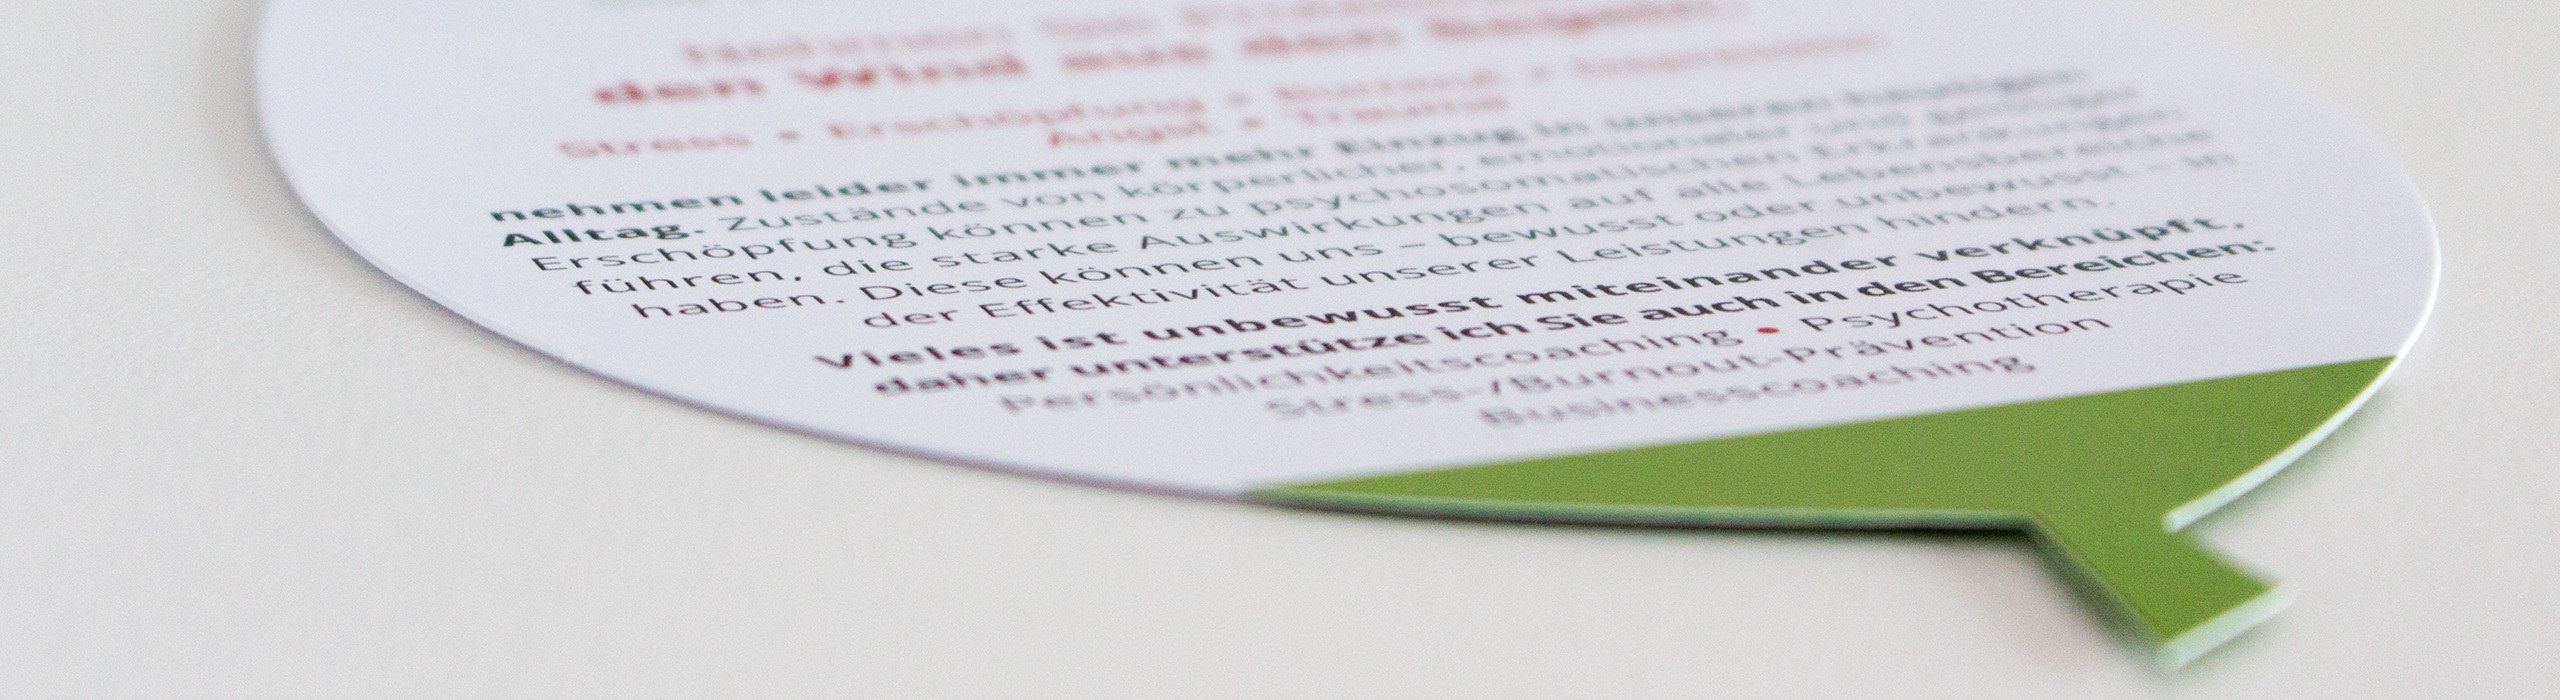 den Wind aus den Segeln.
Stress • Erschöpfung • Burnout • Depression
Angst • Trauma
nehmen leider immer mehr Einzug in unseren heutigen
Alltag. Zustände von körperlicher, emotionaler und geistiger
Erschöpfung können zu psychosomatischen Erkrankungen
führen, die starke Auswirkungen auf alle Lebensbereiche
haben. Diese können uns – bewusst oder unbewusst – in
der Effektivität unserer Leistungen hindern.
Vieles ist unbewusst miteinander verknüpft,
daher unterstütze ich Sie auch in den Bereichen:
Persönlichkeitscoaching • Psychotherapie
Stress-/Burnout-Prävention
Businesscoaching